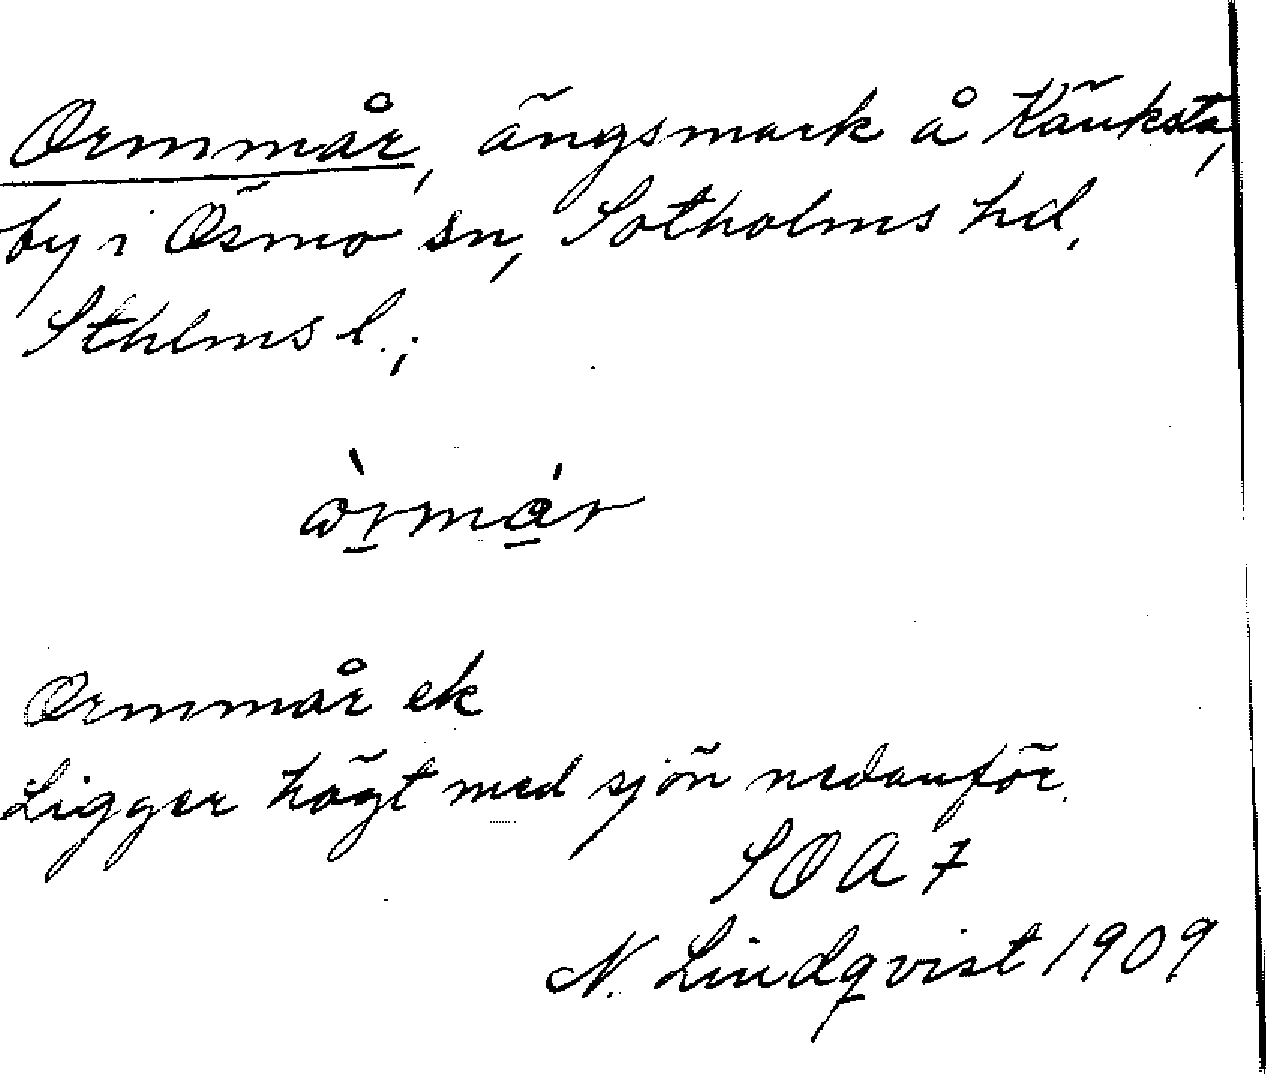 Ormmår, ängsmark å Käuksta,
by i Ösmo sn, Sotholms hd,
Sthlms l.;
òrmár
Ormmår ek
Ligger högt med sjön nedanför.
SOA 7
N. Lindqvist 1909